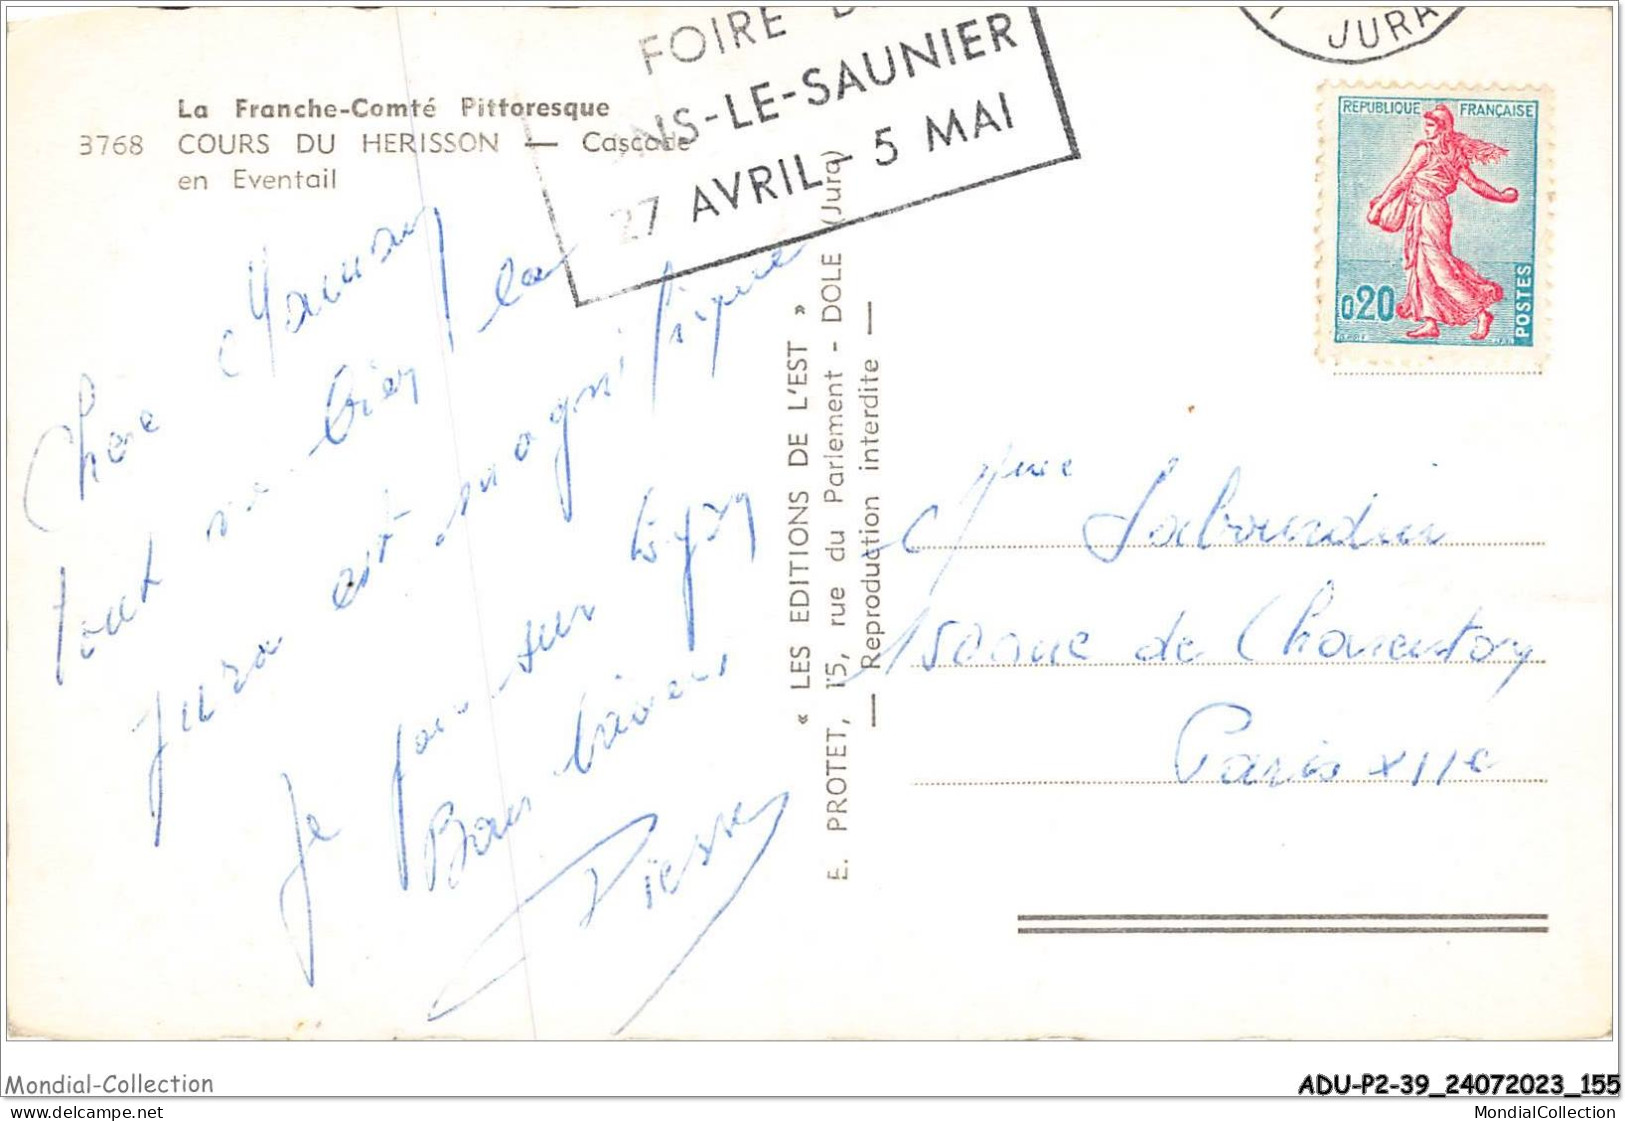 FOIRE D
NS-LE-SAUNIER
27 AVRIL - 5 MAI
JURA
La Franche-Comté Pittoresque
3768 COURS DU HERISSON — Cascade
en Eventail
REPUBLIQUE FRANÇAISE
0,20
POSTES
Chère Maman
tout va bien la
Jura est magnifique
Je sur Lyon
Bons baisers
Pierre
« LES EDITIONS DE L'EST »
E. PROTET, 15, rue du Parlement - DOLE (Jura)
— Reproduction interdite —
Mme Labourdin
150 rue de Charenton
Paris XIIe
Mondial-Collection
ADU-P2-39_24072023_155
www.delcampe.net
MondialCollection